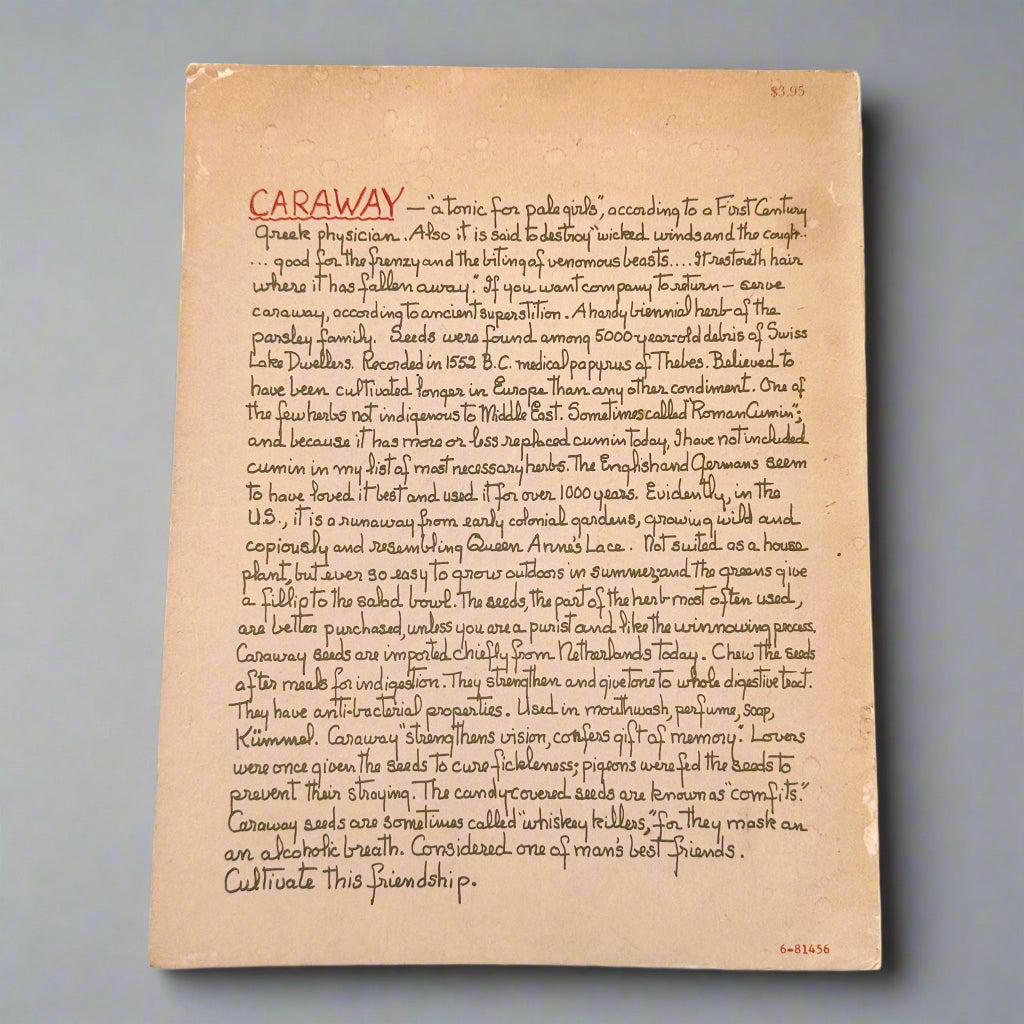 $3.95
CARAWAY — "a tonic for pale girls", according to a First Century
Greek physician. Also it is said to destroy "wicked winds and the cough..
... good for the frenzy and the biting of venomous beasts.... It restoreth hair
where it has fallen away." If you want company to return — serve
caraway, according to ancient superstition. A hardy biennial herb of the
parsley family. Seeds were found among 5000-year-old debris of Swiss
Lake Dwellers. Recorded in 1552 B.C. medical papyrus of Thebes. Believed to
have been cultivated longer in Europe than any other condiment. One of
the few herbs not indigenous to Middle East. Sometimes called "Roman Cumin";
and because it has more or less replaced cumin today, I have not included
cumin in my list of most necessary herbs. The English and Germans seem
to have loved it best and used it for over 1000 years. Evidently, in the
U.S., it is a runaway from early colonial gardens, growing wild and
copiously and resembling Queen Anne's Lace. Not suited as a house
plant, but ever so easy to grow outdoors in summer; and the greens give
a fillip to the salad bowl. The seeds, the part of the herb most often used,
are better purchased, unless you are a purist and like the winnowing process.
Caraway seeds are imported chiefly from Netherlands today. Chew the seeds
after meals for indigestion. They strengthen and give tone to whole digestive tract.
They have anti-bacterial properties. Used in mouthwash, perfume, soap,
Kümmel. Caraway "strengthens vision, confers gift of memory". Lovers
were once given the seeds to cure fickleness; pigeons were fed the seeds to
prevent their straying. The candy-covered seeds are known as "comfits."
Caraway seeds are sometimes called "whiskey killers," for they mask an
an alcoholic breath. Considered one of man's best friends.
Cultivate this friendship.
6-81456